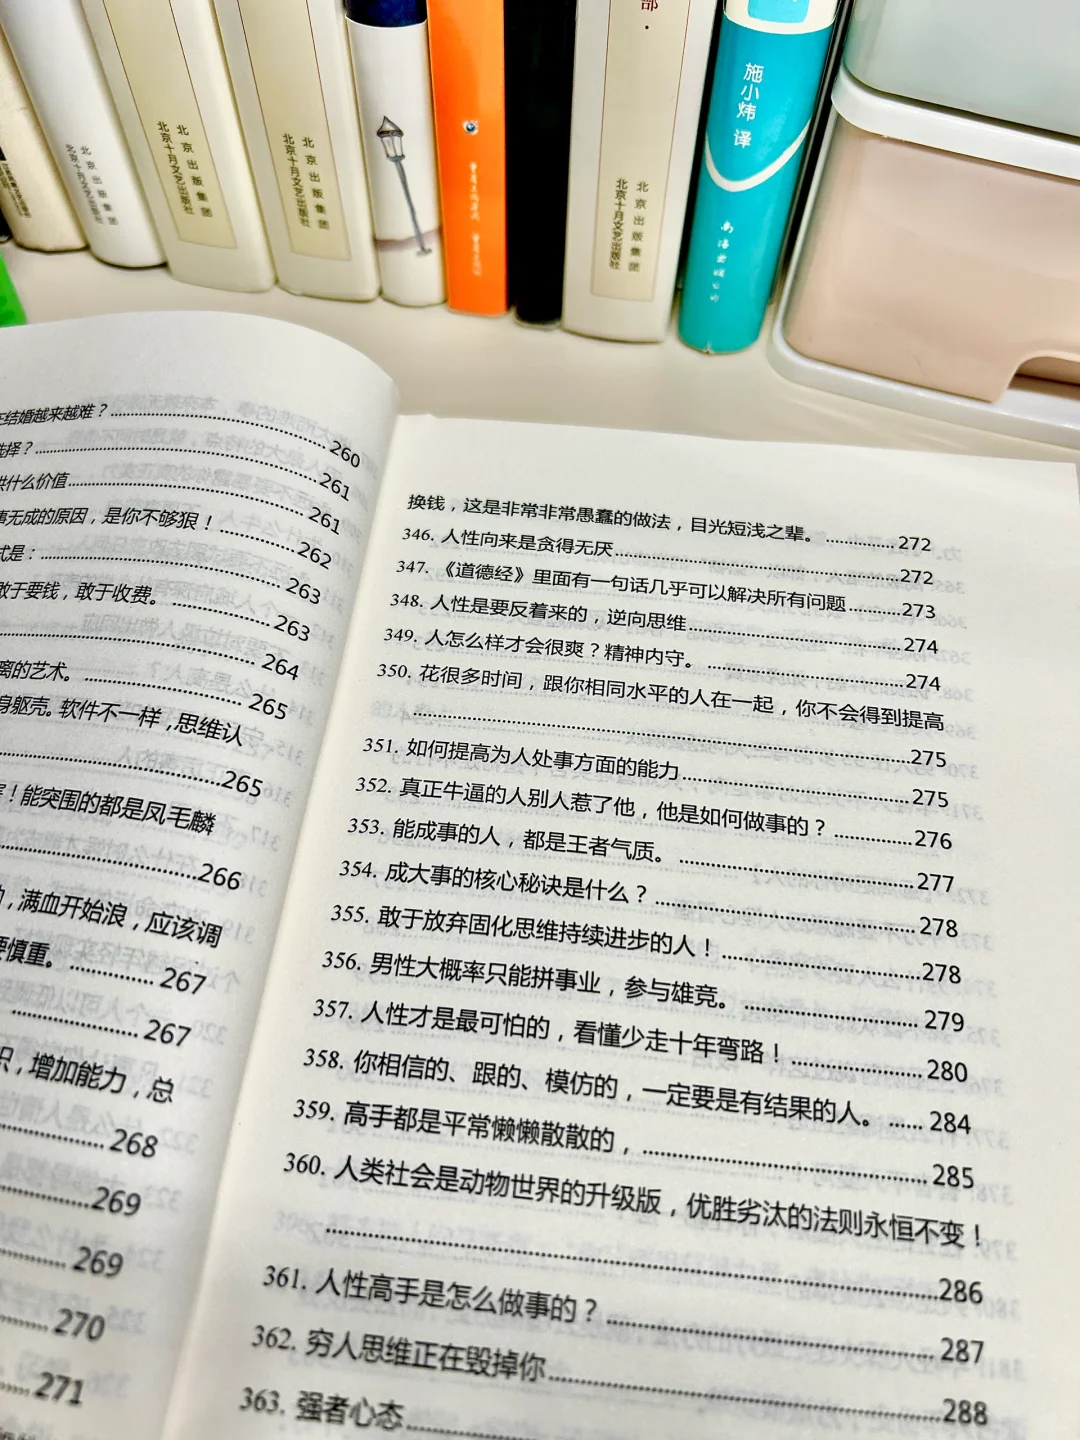 部·
北京出版集团
北京十月文艺出版社
北京出版集团
北京十月文艺出版社
北京出版集团
北京十月文艺出版社
北京出版集团
北京十月文艺出版社
施小炜 译
南海出版公司
结婚越来越难？ 260
择？ 261
供什么价值 261
事无成的原因，是你不够狠！ 262
式是： 263
敢于要钱，敢于收费。 263
264
离的艺术。 265
身躯壳。软件不一样，思维认
265
！能突围的都是凤毛麟
266
，满血开始浪，应该调
要慎重。 267
267
识，增加能力，总
268
269
269
270
271
换钱，这是非常非常愚蠢的做法，目光短浅之辈。 272
346. 人性向来是贪得无厌 272
347. 《道德经》里面有一句话几乎可以解决所有问题 273
348. 人性是要反着来的，逆向思维 274
349. 人怎么样才会很爽？精神内守。 274
350. 花很多时间，跟你相同水平的人在一起，你不会得到提高
275
351. 如何提高为人处事方面的能力 275
352. 真正牛逼的人别人惹了他，他是如何做事的？ 276
353. 能成事的人，都是王者气质。 277
354. 成大事的核心秘诀是什么？ 278
355. 敢于放弃固化思维持续进步的人！ 278
356. 男性大概率只能拼事业，参与雄竞。 279
357. 人性才是最可怕的，看懂少走十年弯路！ 280
358. 你相信的、跟的、模仿的，一定要是有结果的人。 284
359. 高手都是平常懒懒散散的， 285
360. 人类社会是动物世界的升级版，优胜劣汰的法则永恒不变！
286
361. 人性高手是怎么做事的？ 287
362. 穷人思维正在毁掉你 288
363. 强者心态